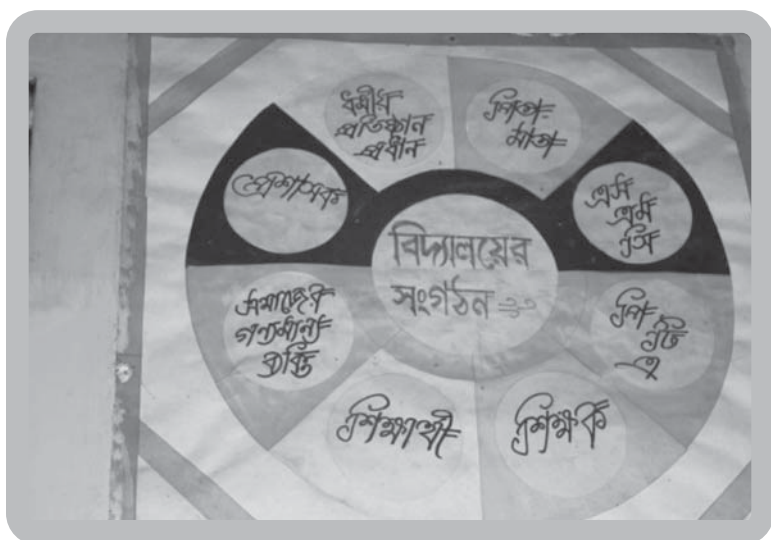 বিদ্যালয়ের
সংগঠন
ধর্মীয়
প্রতিষ্ঠান
প্রধান
পিতা-
মাতা
এস
এম
সি
পি
টি
এ
শিক্ষক
শিক্ষার্থী
সমাজের
গণ্যমান্য
ব্যক্তি
প্রশাসক